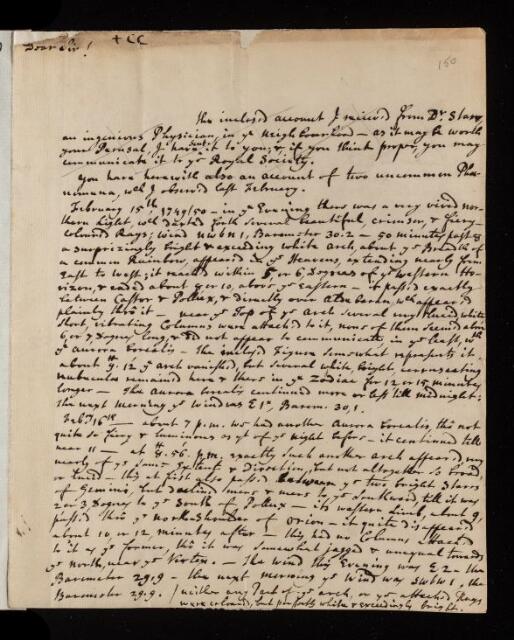 + CC
Dear Sir!
150
the inclosed account I receiv'd from Dr. Starr,
an ingenious Physician, in ye Neighbourhood – as it may be worth
your Perusal, I have sent it to you; & if you think proper, you may
communicate it to ye Royal Society.
You have herewith also an account of two uncommon Phæ-
nomena, wch I observ'd last February.
February 15th, 1749/50 – in ye Evening there was a very vivid nor-
thern light, wch darted forth several beautiful, crimson, & fiery-
colour'd Rays; wind Barometer 30.2 – 50 minutes past 8
a surprizingly bright & exceeding white arch, about ye Breadth of
a common Rainbow, appeared in ye Heavens, extending nearly from
East to West; it reach'd within 5, or 6 Degrees of ye Western Ho-
rizon, & ended about 9 or 10, above ye Eastern – it pass'd exactly
between Castor & Pollux, & directly over Aldebaran, wch appear'd
plainly thro' it – near ye Top of ye arch several very lucid white
short, vibrating Columns were attach'd to it, none of them seem'd above
6, or 7 Degrees long, & did not appear to communicate, in ye least, wth
ye aurora borealis – The inclosed Figure somewhat represents it –
about 9h. 12 ye arch vanished, but several white, bright,
nubeculæ remained here & there in ye Zodiac for 12 or 15 minutes
longer – The aurora borealis continued more or less till midnight:
The next Morning ye wind was E1, Barom: 30,1.
Feb: 16th – about 7 p.m. we had another Aurora borealis, tho not
quite so fiery & luminous as yt of ye Night before – it continued till
near 11 – at 8h. 56. p.m. exactly such another arch appear'd, very
nearly of ye same Extent & Direction, but not altogether so broad,
or lucid – this at first also passed between ye two bright Starrs
of Gemini, but declined more & more to ye Southward, till it was
2 or 3 Degrees to ye South of Pollux – its western limb, about 9,
pass'd thro' ye North shoulder of Orion – it quite disappeared
about 10, or 12, minutes after – this had no Columns attach'd
to it as ye former, tho it was somewhat jagged & unequal towards
ye North, near ye Vertex. – The wind this Evening was E2 – the
Barometer 29.9 – the next Morning ye Wind was SWbW1, the
Barometer 29.9. / neither any Part of ye arch, or ye attached Rays
were colour'd, but perfectly white & exceedingly bright.